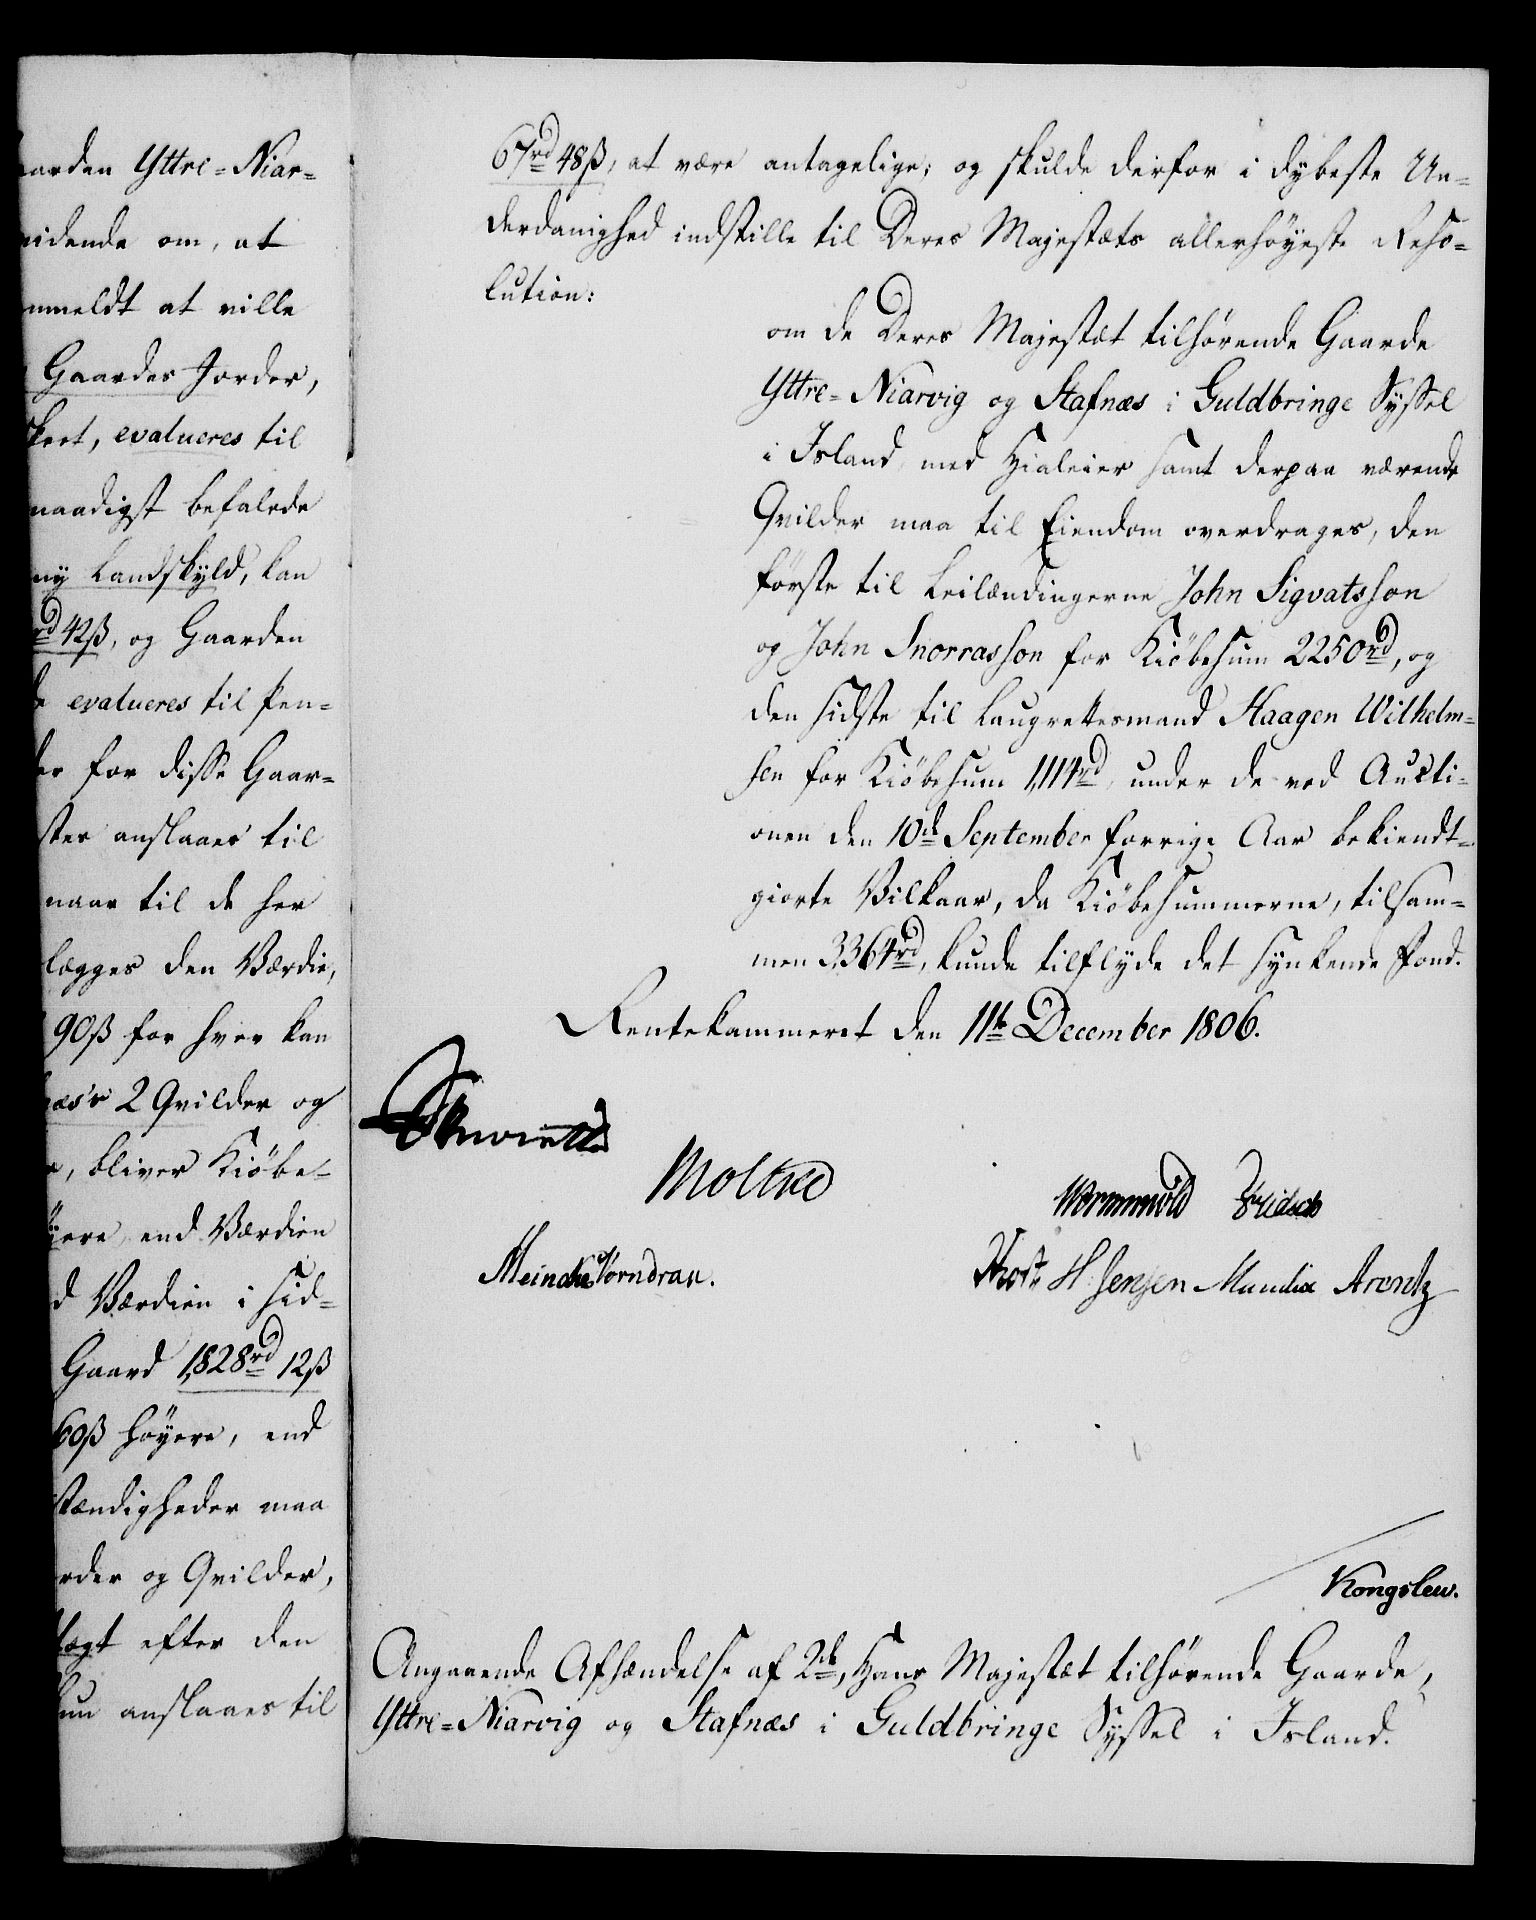 aarden Yttre=Niar=
vidende om, at
nmeldt at ville
Gaardes Jorder,
skort, evalueres til
naadigst befalede
ny Landskyld, kan
rd 42ß, og Gaarden
evalueres til Pen=
er for disse Gaar=
ster anslaaes til
naar til de her
lægges den Værdie,
90ß for hver kan
næs's 2 Qvilder og
bliver Kiöbe=
ere, end Værdien
d Værdien i Hid=
Gaard 1,828rd 12ß
60ß höyere, end
stændigheder maa
rder og Qvilder,
lagt efter den
un anslaaes til
67rd 48ß, at være antagelige; og skulde derfor i dybeste Un=
derdanighed indstille til Deres Majestæts allerhöyeste Reso=
lution:
om de Deres Majestæt tilhörende Gaarde
Yttre=Niarvig og Stafnæs i Guldbringe Syssel
i Island, med Hialeier samt derpaa værende
Qvilder maa til Eiendom overdrages, den
förste til Leilændingerne John Sigvatsson
og John Snorrasson for Kiöbesum 2250rd, og
den sidste til Laugrettesmand Haagen Wilhelm=
sen for Kiöbesum 1,114rd, under de ved Aucti=
onen den 10de September forrige Aar bekiendt=
giorte Vilkaar, da Kiöbesummerne, tilsam=
men 3,364rd, kunde tilflyde det synkende Fond.
Rentekammeret den 11te December 1806.
Moltke
Wormskiold
Meincke Vorndran.
H Jensen Mandix Arentz
Kongslew.
Angaaende Afhændelse af 2de, Hans Majestæt tilhörende Gaarde,
Yttre=Niarvig og Stafnæs i Guldbringe Syssel i Island.